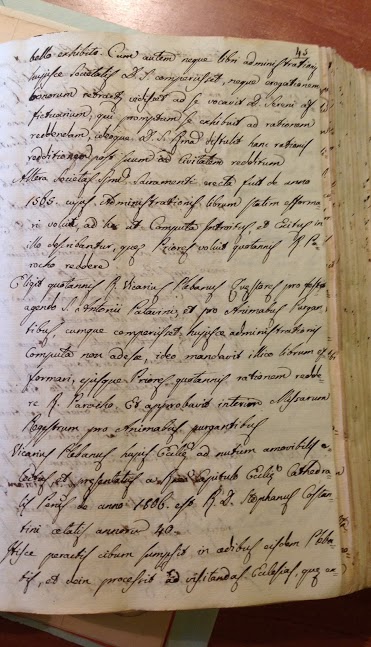 45
bello exhibito. Cum autem neque libri administrationis
hujusce societatis D. S. comperisset, neque erogationem
bonorum vidisset ad se vocavit D.
qui promptum se exhibuit ad rationem
reddendam, ideoque D. S. distulit hanc rationis
redditionem post suum in Civitatem reditum
Altera societas Smi Sacramenti erecta fuit de anno
1585. cujus Administrationis librum statim efforma-
ri voluit, ad hoc ut Computa Introitus et Exitus in
illo describantur, quos Priores voluit quotannis R Pa-
rocho reddere
Eligit quotannis R. Vicarius Plebanus Quęstores pro festo
agendo S. Antonii Patavini, et pro Animabus Purgan-
tibus cumque comperisset, hujusce administrationis
Computa non adesse, ideo mandavit illico librum ef-
formari, ejusque Priores quotannis rationem redde-
re R. Parocho. Et approbavit interim Missarum
Regestrum pro Animabus purgantibus
Vicarius Plebanus hujus Ecclię ad nutum amovibilis e-
lectus et presentatus a Capitulo Ecclię Cathedra-
de anno 1806. est R. D. Stephanus Costan-
tini ætatis annorum 40.
Hisce peractis cibum sumpsit in ædibus ejusdem Pleba-
et dein processit ad visitandas Ecclesias, quę